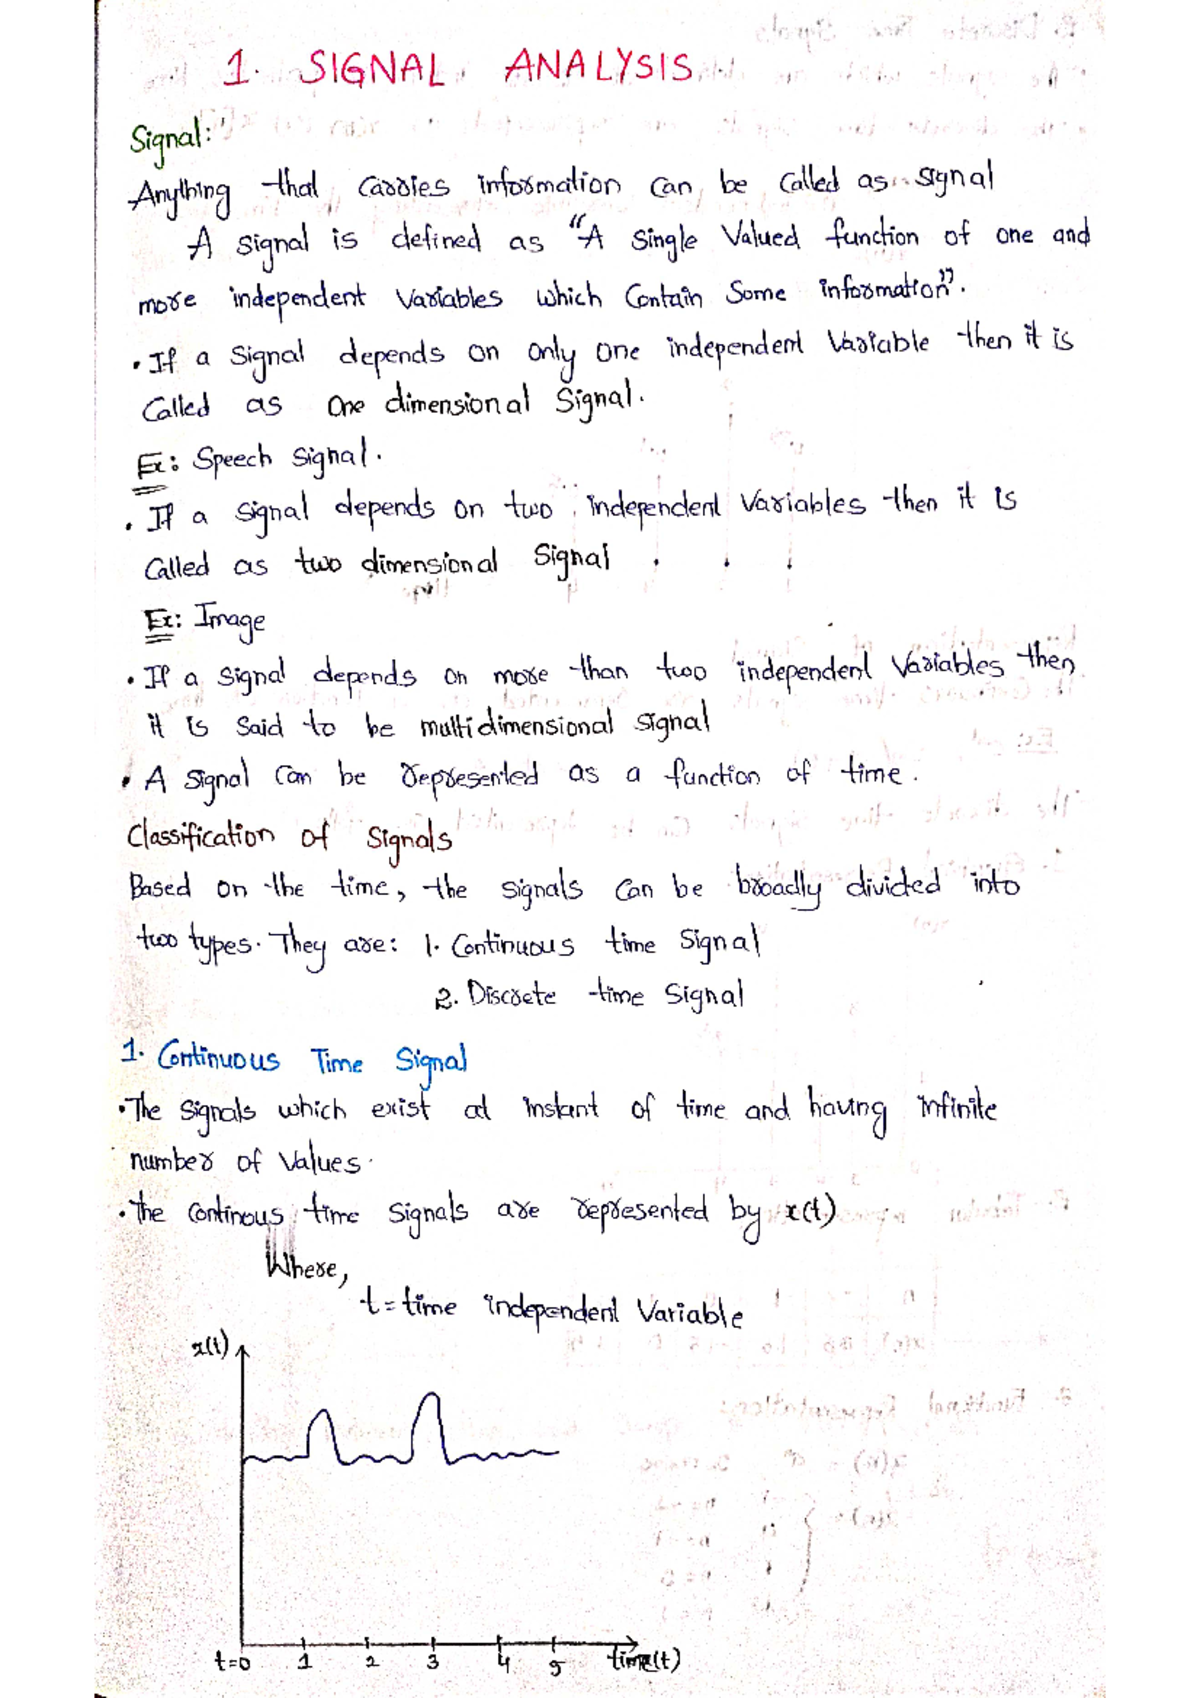 1. SIGNAL ANALYSIS
Signal:
Anything that carries information can be called as signal
A signal is defined as "A Single Valued function of one and
more independent variables which Contain Some information".
• If a Signal depends on only one independent Variable then it is
Called as One dimensional Signal.
Ex: Speech signal.
• If a signal depends on two independent Variables then it is
Called as two dimensional Signal
Ex: Image
• If a signal depends on more than two independent Variables then
it is Said to be multidimensional signal
• A signal can be represented as a function of time.
Classification of Signals
Based on the time, the signals can be broadly divided into
two types. They are: 1. Continuous time Signal
2. Discrete time Signal
1. Continuous Time Signal
• The signals which exist at instant of time and having infinite
number of Values.
• The Continous time signals are represented by x(t)
Where,
t = time independent Variable
x(t)
t=0 1 2 3 4 5 time(t)